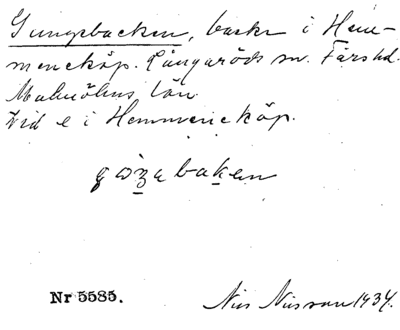 Gungebacken, backe i Hem-
meneköp. Långaröds sn. Färs hd.
Malmöhus län.
Vid e i Hemmeneköp.
bakan
Nr 5585.
Nils Nilsson 1934.